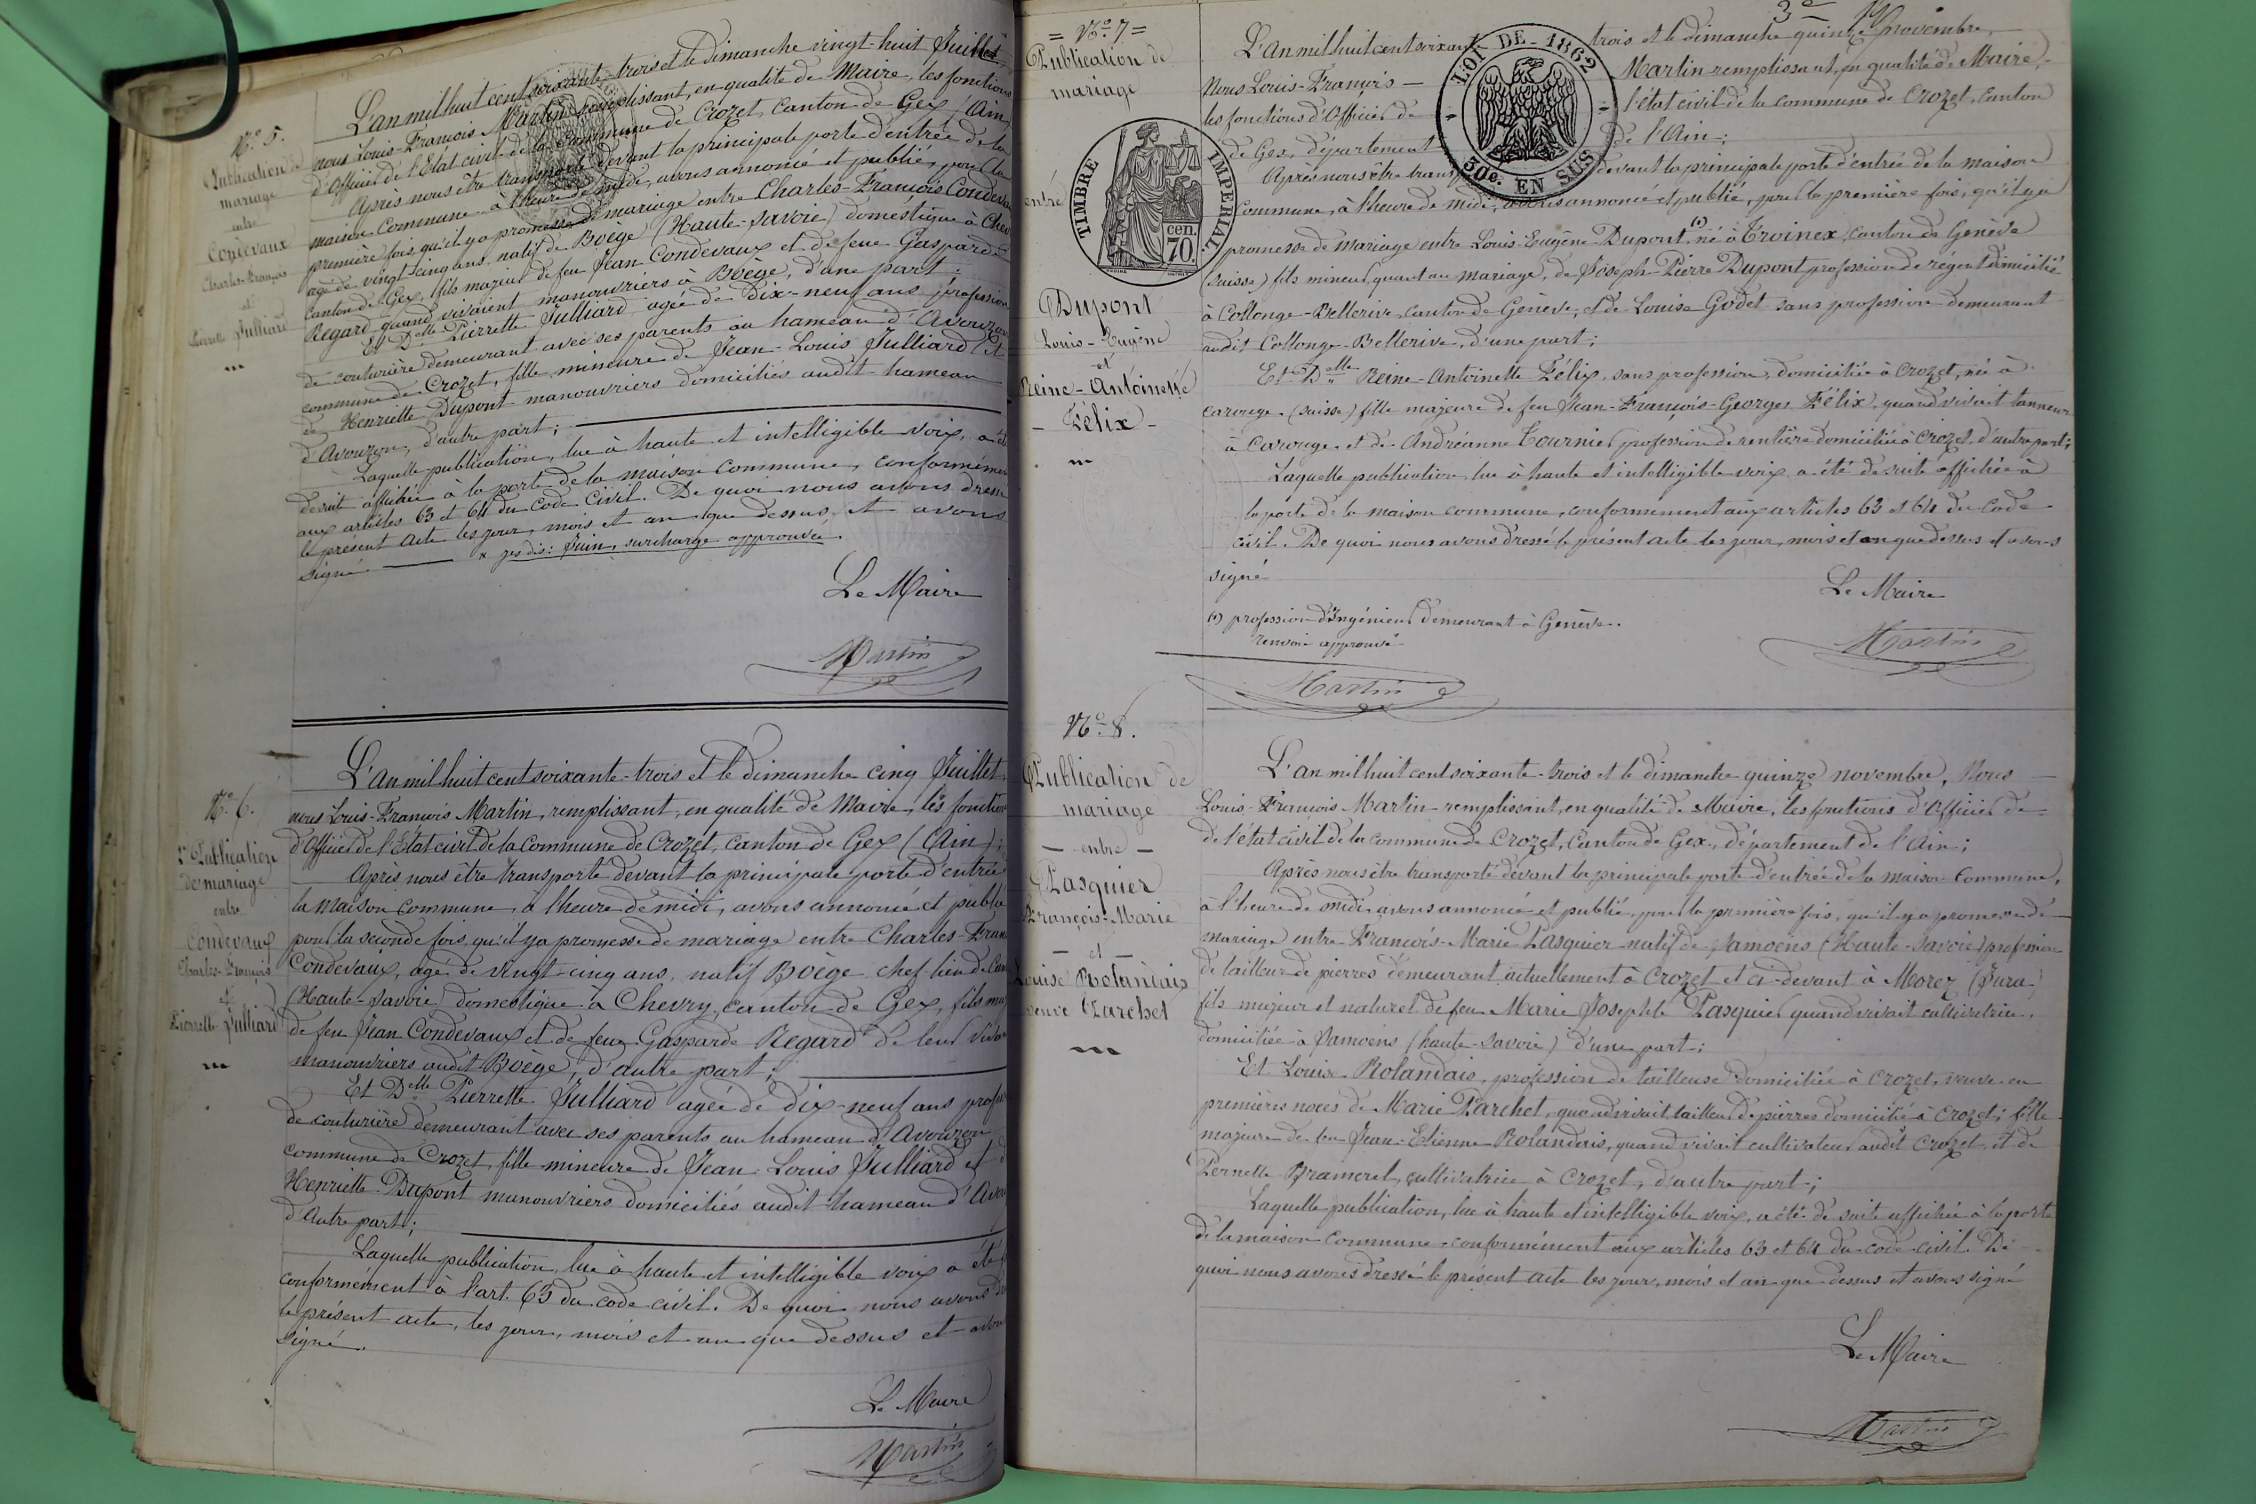 N° 5.
Publication de
mariage
entre
Condevaux
Charles-François
et
Pierrette Julliard
L'an mil huit cent soixante-trois et le dimanche vingt-huit Juillet
nous Louis-François Martin remplissant, en qualité de Maire, les fonctions
d'Officier de l'Etat civil de la Commune de Crozet, Canton de Gex (Ain
Après nous être transporté devant la principale porte d'entrée de la
maison Commune à l'heure de midi, avons annoncé et publié, pour la
première fois qu'il y a promesse de mariage entre Charles-François Condevau
agé de vingt cinq ans natif de Boëge (Haute-Savoie) domestique à Chev
Canton de Gex, fils majeur de feu Jean Condevaux et de feue Gasparde
Regard quand vivaient manouvriers à Boëge, d'une part;
Et Delle Pierrette Julliard agée de dix-neuf ans profession
de couturière demeurant avec ses parents au hameau d'Avouzon
commune de Crozet, fille mineure de Jean-Louis Julliard et
de Henriette Dupont manouvriers domiciliés audit hameau
d'Avouzon, d'autre part;
Laquelle publication, lue à haute et intelligible voix, a été
de suite affichée à la porte de la maison commune, conformémen
aux articles 63 et 64 du Code Civil. De quoi nous avons dressé
le présent acte les jour, mois et an que dessus et avons
signé x jes dis: Juin, surcharge approuvée.
Le Maire
Martin
N° 6.
2e Publication
de mariage
entre
Condevaux
Charles-François
et
Pierrette Julliard
L'an mil huit cent soixante-trois et le dimanche cinq Juillet
nous Louis-François Martin, remplissant, en qualité de Maire, les fonction
d'Officier de l'Etat civil de la Commune de Crozet, canton de Gex (Ain);
Après nous être transporté devant la principale porte d'entrée
la maison commune, à l'heure de midi, avons annoncé et publié
pour la seconde fois qu'il y a promesse de mariage entre Charles-Fran
Condevaux, agé de vingt-cinq ans, natif Boëge chef lieu de Can
(Haute-Savoie) domestique à Chevry, canton de Gex, fils maj
de feu Jean Condevaux et de feue Gasparde Regard de leur viva
manouvriers audit Boëge, d'autre part;
Et Delle Pierrette Julliard agée de dix-neuf ans profes
de couturière demeurant avec ses parents au hameau d'Avouzon
commune de Crozet, fille mineure de Jean-Louis Julliard et d
Henriette Dupont manouvriers domiciliés audit hameau d'Avou
d'Autre part;
Laquelle publication, lue à haute et intelligible voix a été
conformément à l'art. 63 du code civil. De quoi nous avons
le présent acte, les jour, mois et an que dessus et avon
signé.
Le Maire
Martin
3e
= N° 7 =
Publication de
mariage
entre
Dupont
Louis-Eugène
et
Reine-Antoinette
- Félix -
TIMBRE IMPERIAL.
70. cen.
LOI DE 1862
30c. EN SUS
L'an mil huit cent soixant trois et le dimanche quinze novembre,
Nous Louis-François Martin remplissant, en qualité de Maire,
les fonctions d'Officier de l'état civil de la commune de Crozet, Canton
de Gex, département de l'Ain;
Après nous être transp devant la principale porte d'entrée de la maison
Commune, à l'heure de midi, avons annoncé et publié, pour la première fois, qu'il y a
promesse de mariage entre Louis-Eugène Dupont (1) né à Troinex, canton de Genève
(suisse) fils mineur, quant au mariage, de Joseph-Pierre Dupont profession de régent domicilié
à Collonge-Bellerive, canton de Genève, et de Louise Godet sans profession demeurant
audit Collonge-Bellerive, d'une part;
Et Delle Reine-Antoinette Félix, sans profession, domiciliée à Crozet, née à
Carouge (suisse) fille majeure de feu Jean-François-Georges Félix, quand vivait tanneur
à Carouge et de Andréanne Tournier profession de rentière domiciliée à Crozet d'autre part;
Laquelle publication lue à haute et intelligible voix a été de suite affichée à
la porte de la maison commune, conformément aux articles 63 et 64 du Code
civil. De quoi nous avons dressé le présent acte les jour, mois et an que dessus et avons
signé
Le Maire
(1) profession d'Ingénieur demeurant à Genève.
renvoi approuvé
Martin
Martin
N° 8.
Publication de
mariage
- entre -
Pasquier
François-Marie
- et -
Louise Rolandais
veuve Parchet
L'an mil huit cent soixante-trois et le dimanche quinze novembre, Nous
Louis-François Martin remplissant, en qualité de Maire, les fonctions d'Officier de
de l'état civil de la commune de Crozet, Canton de Gex, département de l'Ain;
Après nous être transporté devant la principale porte d'entrée de la maison Commune,
à l'heure de midi avons annoncé et publié, pour la première fois, qu'il y a promesse de
mariage entre François-Marie Pasquier natif de Samoëns (Haute-Savoie) profession
de tailleur de pierres demeurant actuellement à Crozet et ci-devant à Morez (Jura)
fils majeur et naturel de feue Marie Josephte Pasquier quand vivait cultivatrice,
domiciliée à Samoëns (haute-savoie) d'une part;
Et Louise Rolandais, profession de tailleuse domiciliée à Crozet, veuve en
premières noces de Marie Parchet, quand vivait tailleur de pierres domicilié à Crozet; fille
majeure de feu Jean-Etienne Rolandais, quand vivait cultivateur audit Crozet, et de
Pernette Brameret, cultivatrice à Crozet, d'autre part;
Laquelle publication, lue à haute et intelligible voix, a été de suite affichée à la porte
de la maison Commune conformément aux articles 63 et 64 du code civil. De
quoi nous avons dressé le présent acte les jour, mois et an que dessus et avons signé
Le Maire
Martin